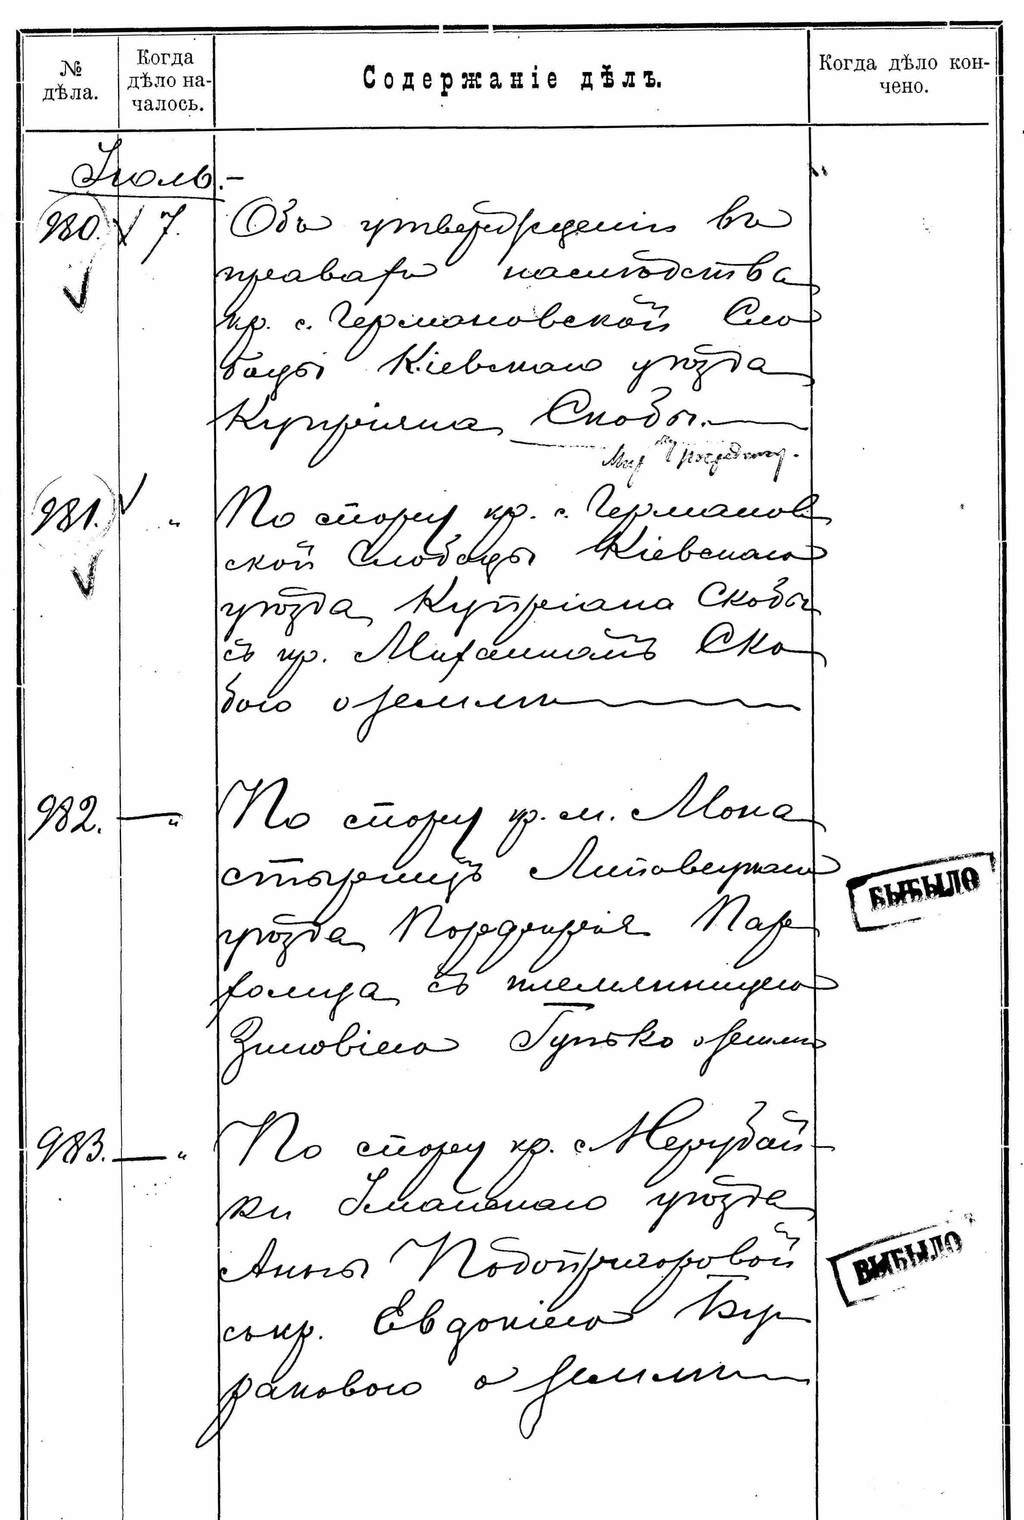 № дѣла.
Когда дѣло началось.
Содержаніе дѣлъ.
Когда дѣло кончено.
Іюль.-
980. 7. Объ утвержденіи въ
правахъ наслѣдства
кр. с. Германовской Сло
боды Кіевскаго уѣзда
Купріяна Скобы.
Мир. Посреднику.
981. " По спору кр. с. Германов
ской Слободы Кіевскаго
уѣзда Купріана Скобы
съ кр. Михаиломъ Ско
бою о землѣ
982. — " По спору кр. м. Мона
стырищъ Липовецкаго
уѣзда Порфирія Пар
фомца съ племянницею
Зиновіею Гунько о землѣ
ВЫБЫЛО
983. — " По спору кр. с. Нерубай-
ки Уманскаго уѣзда
Анны Подопригоровой
съ кр. Евдокіею Бу
раковою о землѣ
ВЫБЫЛО